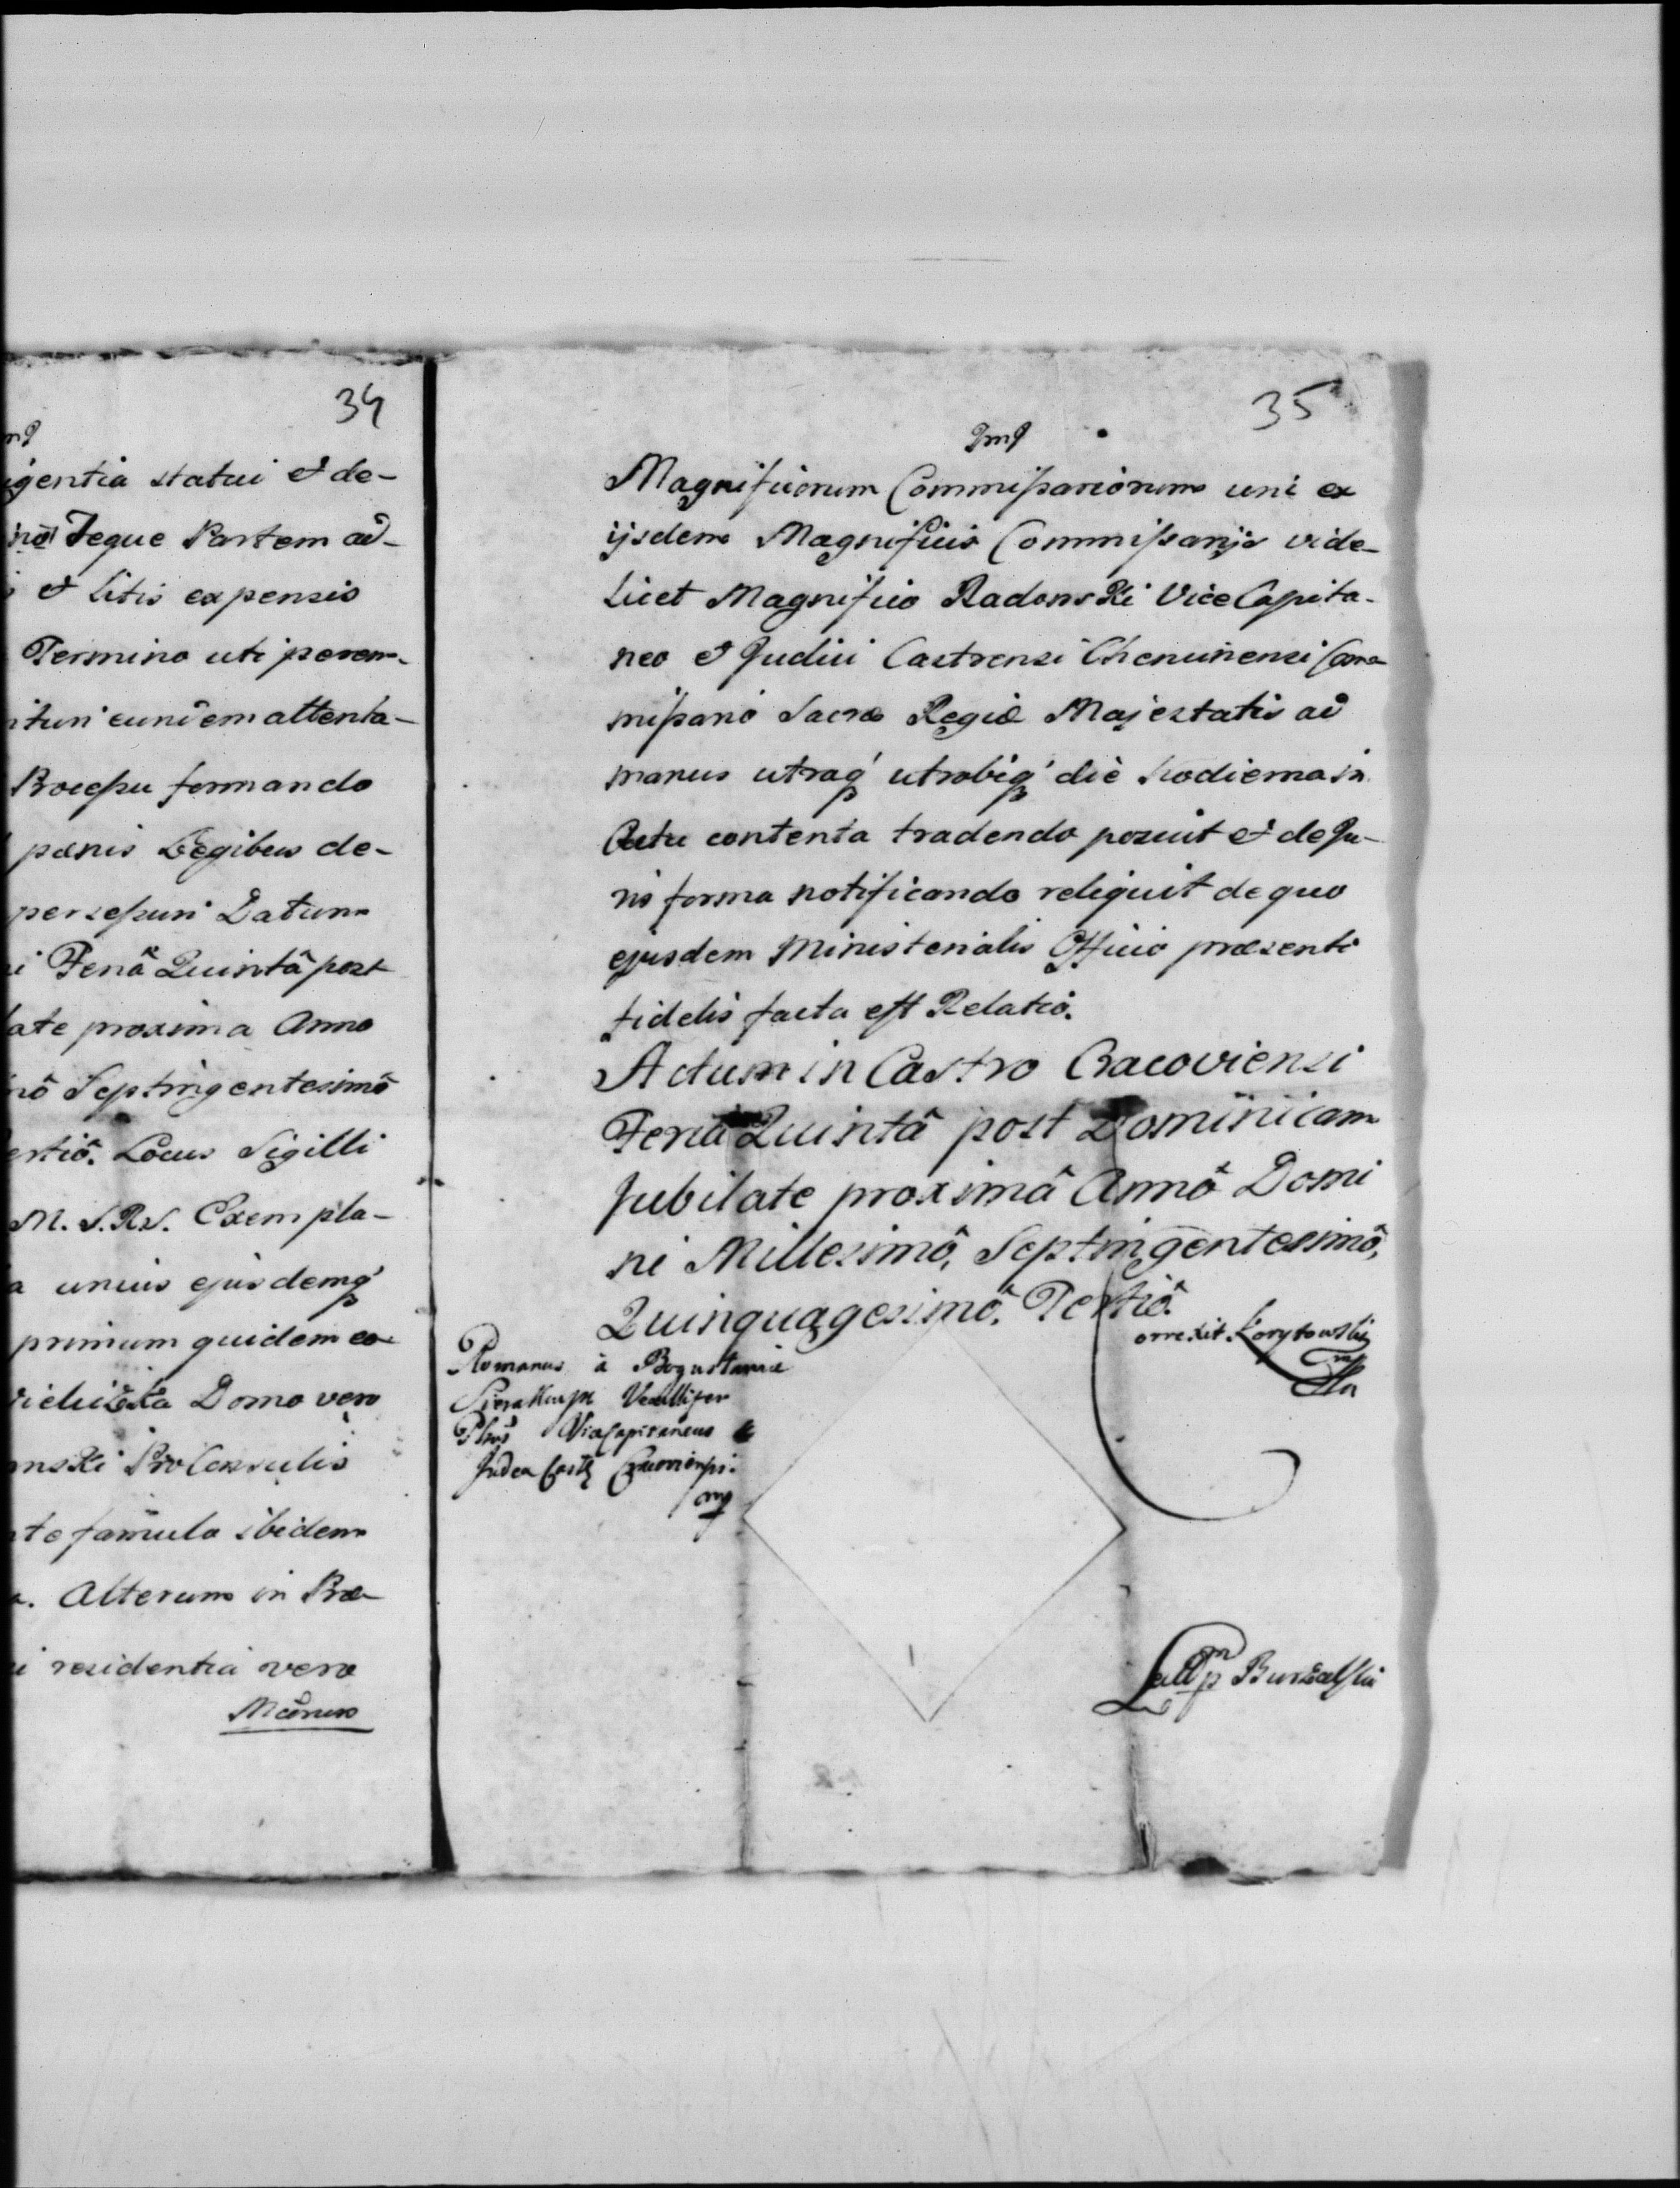 34
igentia statui et de-
Teque Partem ad-
et Litis expensis
Termino uti perem-
ituri eundem attenta-
Processu formando
pænis Legibus de-
persessuri Datum
Feriâ Quintâ post
late proxima Anno
mô Septingentesimô
ertiô. Locus Sigilli
M. S. R. S. Exempla-
a unius ejusdemq́
primum quidem ex
Domo vero
mski ProConsulis
famula ibidem
Alterum in Præ-
residentia vero
Mcorum
35
Magnificorum Commissariorum uni ex
ijsdem Magnificis Commissarijs vide-
licet Magnifico Radonski Vice Capita-
neo et Judici Castrensi Chencinensi Com-
missario Sacræ Regiæ Majestatis ad
manus utraq́ utrobiq́ die hodierna in
Actu contenta tradendo posuit et de Ju-
ris forma notificando reliquit de quo
ejusdem Ministerialis Officio præsenti
fidelis facta est Relatio.
Actum in Castro Cracoviensi
Feriâ Quintâ post Dominicam
Jubilate proximâ Annô Domi
ni Millesimô, Septingentesimô,
Quinquagesimô, Tertiô.
Correxit Korytowski
Romanus à Bogusławice
Sierakowski Vexillifer
ViceCapitaneus &
Judex Castr Cracoviensis
mp
Burzalski